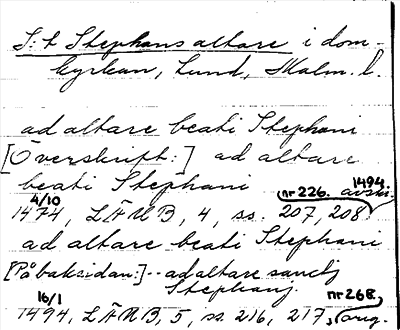 S:t Stephans altare i dom-
kyrkan, Lund, Malm. l.
ad altare beati Stephani
[Överskrift:] ad altare
beati Stephani nr 226. 1494 avskr.
4/10
1474, LÄUB, 4, ss. 207, 208
ad altare beati Stephani
[På baksidan:]--ad altare sancti
Stephanj nr 268.
16/1
1494, LÄUB, 5, ss. 216, 217, orig.